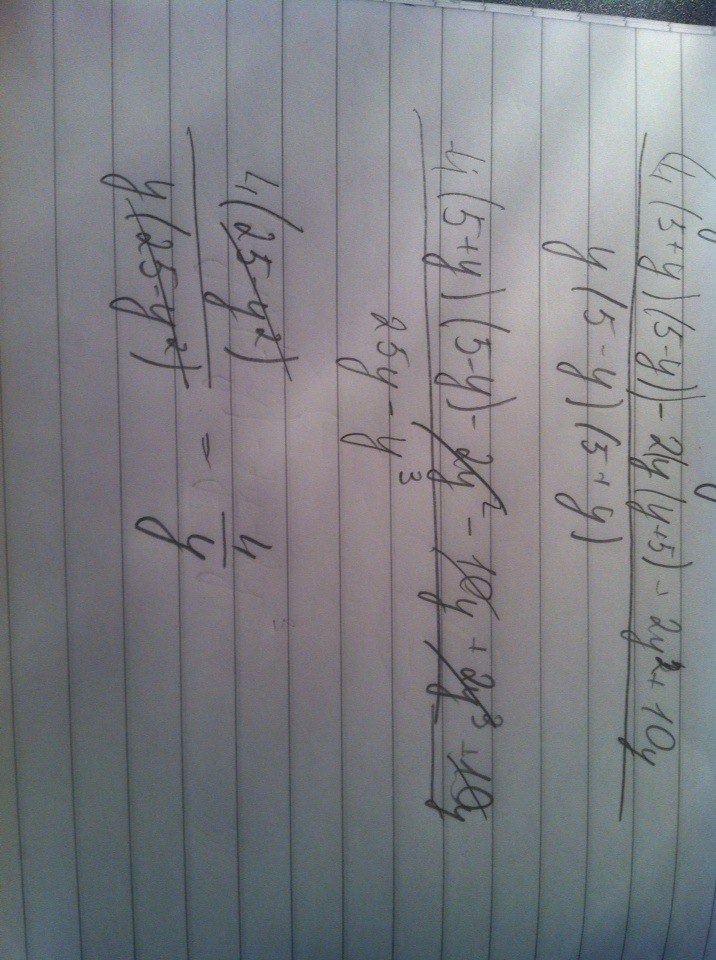 4(5+y)(5-y)-2y(y+5)-2y²+10y
y(5-y)(5+y)
4(5+y)(5-y)-2y²-10y+2y³+10y
25y-y³
4(25-y²)
y(25-y²) = 4/y